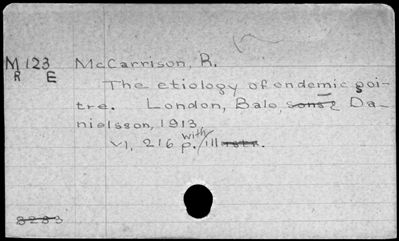 M 123 McCarrison, R.
R E
The etiology of endemic goi-
tre. London, Bale, sons & Da-
nielsson, 1913.
VI, 216 p. with illustr.